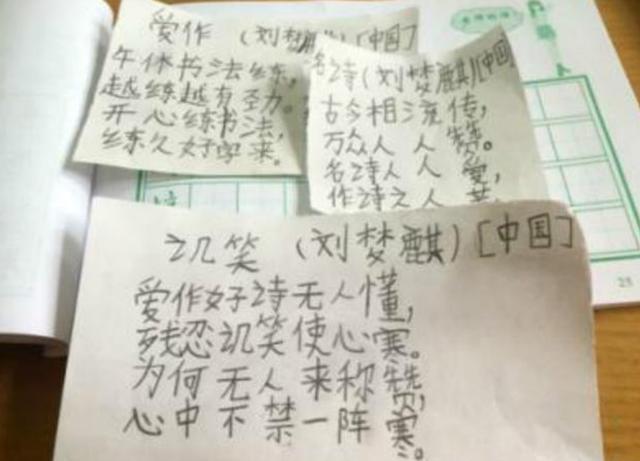 爱作（刘梦麒）[中国]
午休书法练，
越练越有劲力。
开心练书法，
练久好字来。
名诗（刘梦麒）[中国
古今相流传，
万众人人赞。
名诗人人爱，
作诗之人
讥笑（刘梦麒）[中国]
爱作好诗无人懂，
残忍讥笑使心寒。
为何无人来称赞，
心中不禁一阵寒。
25